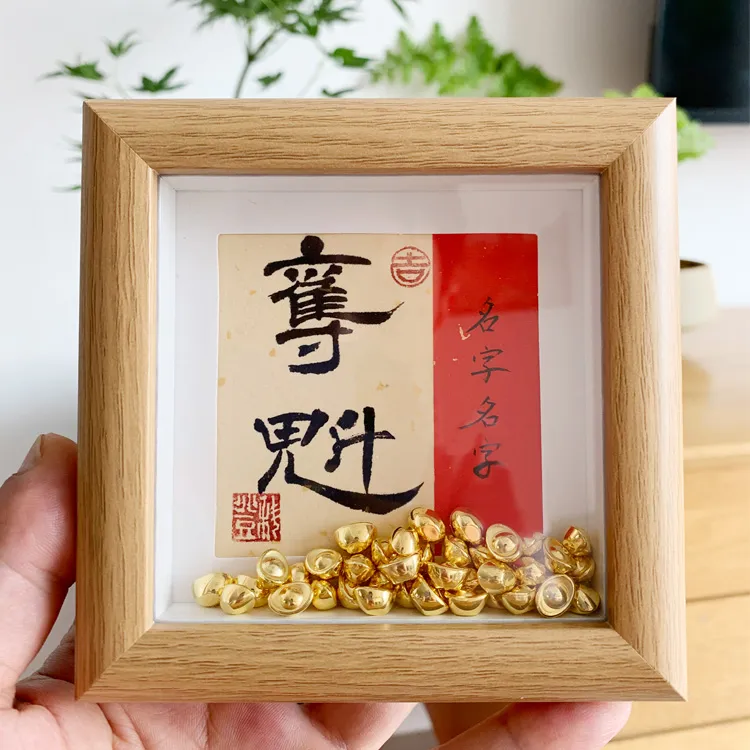 奪魁
吉
名字名字